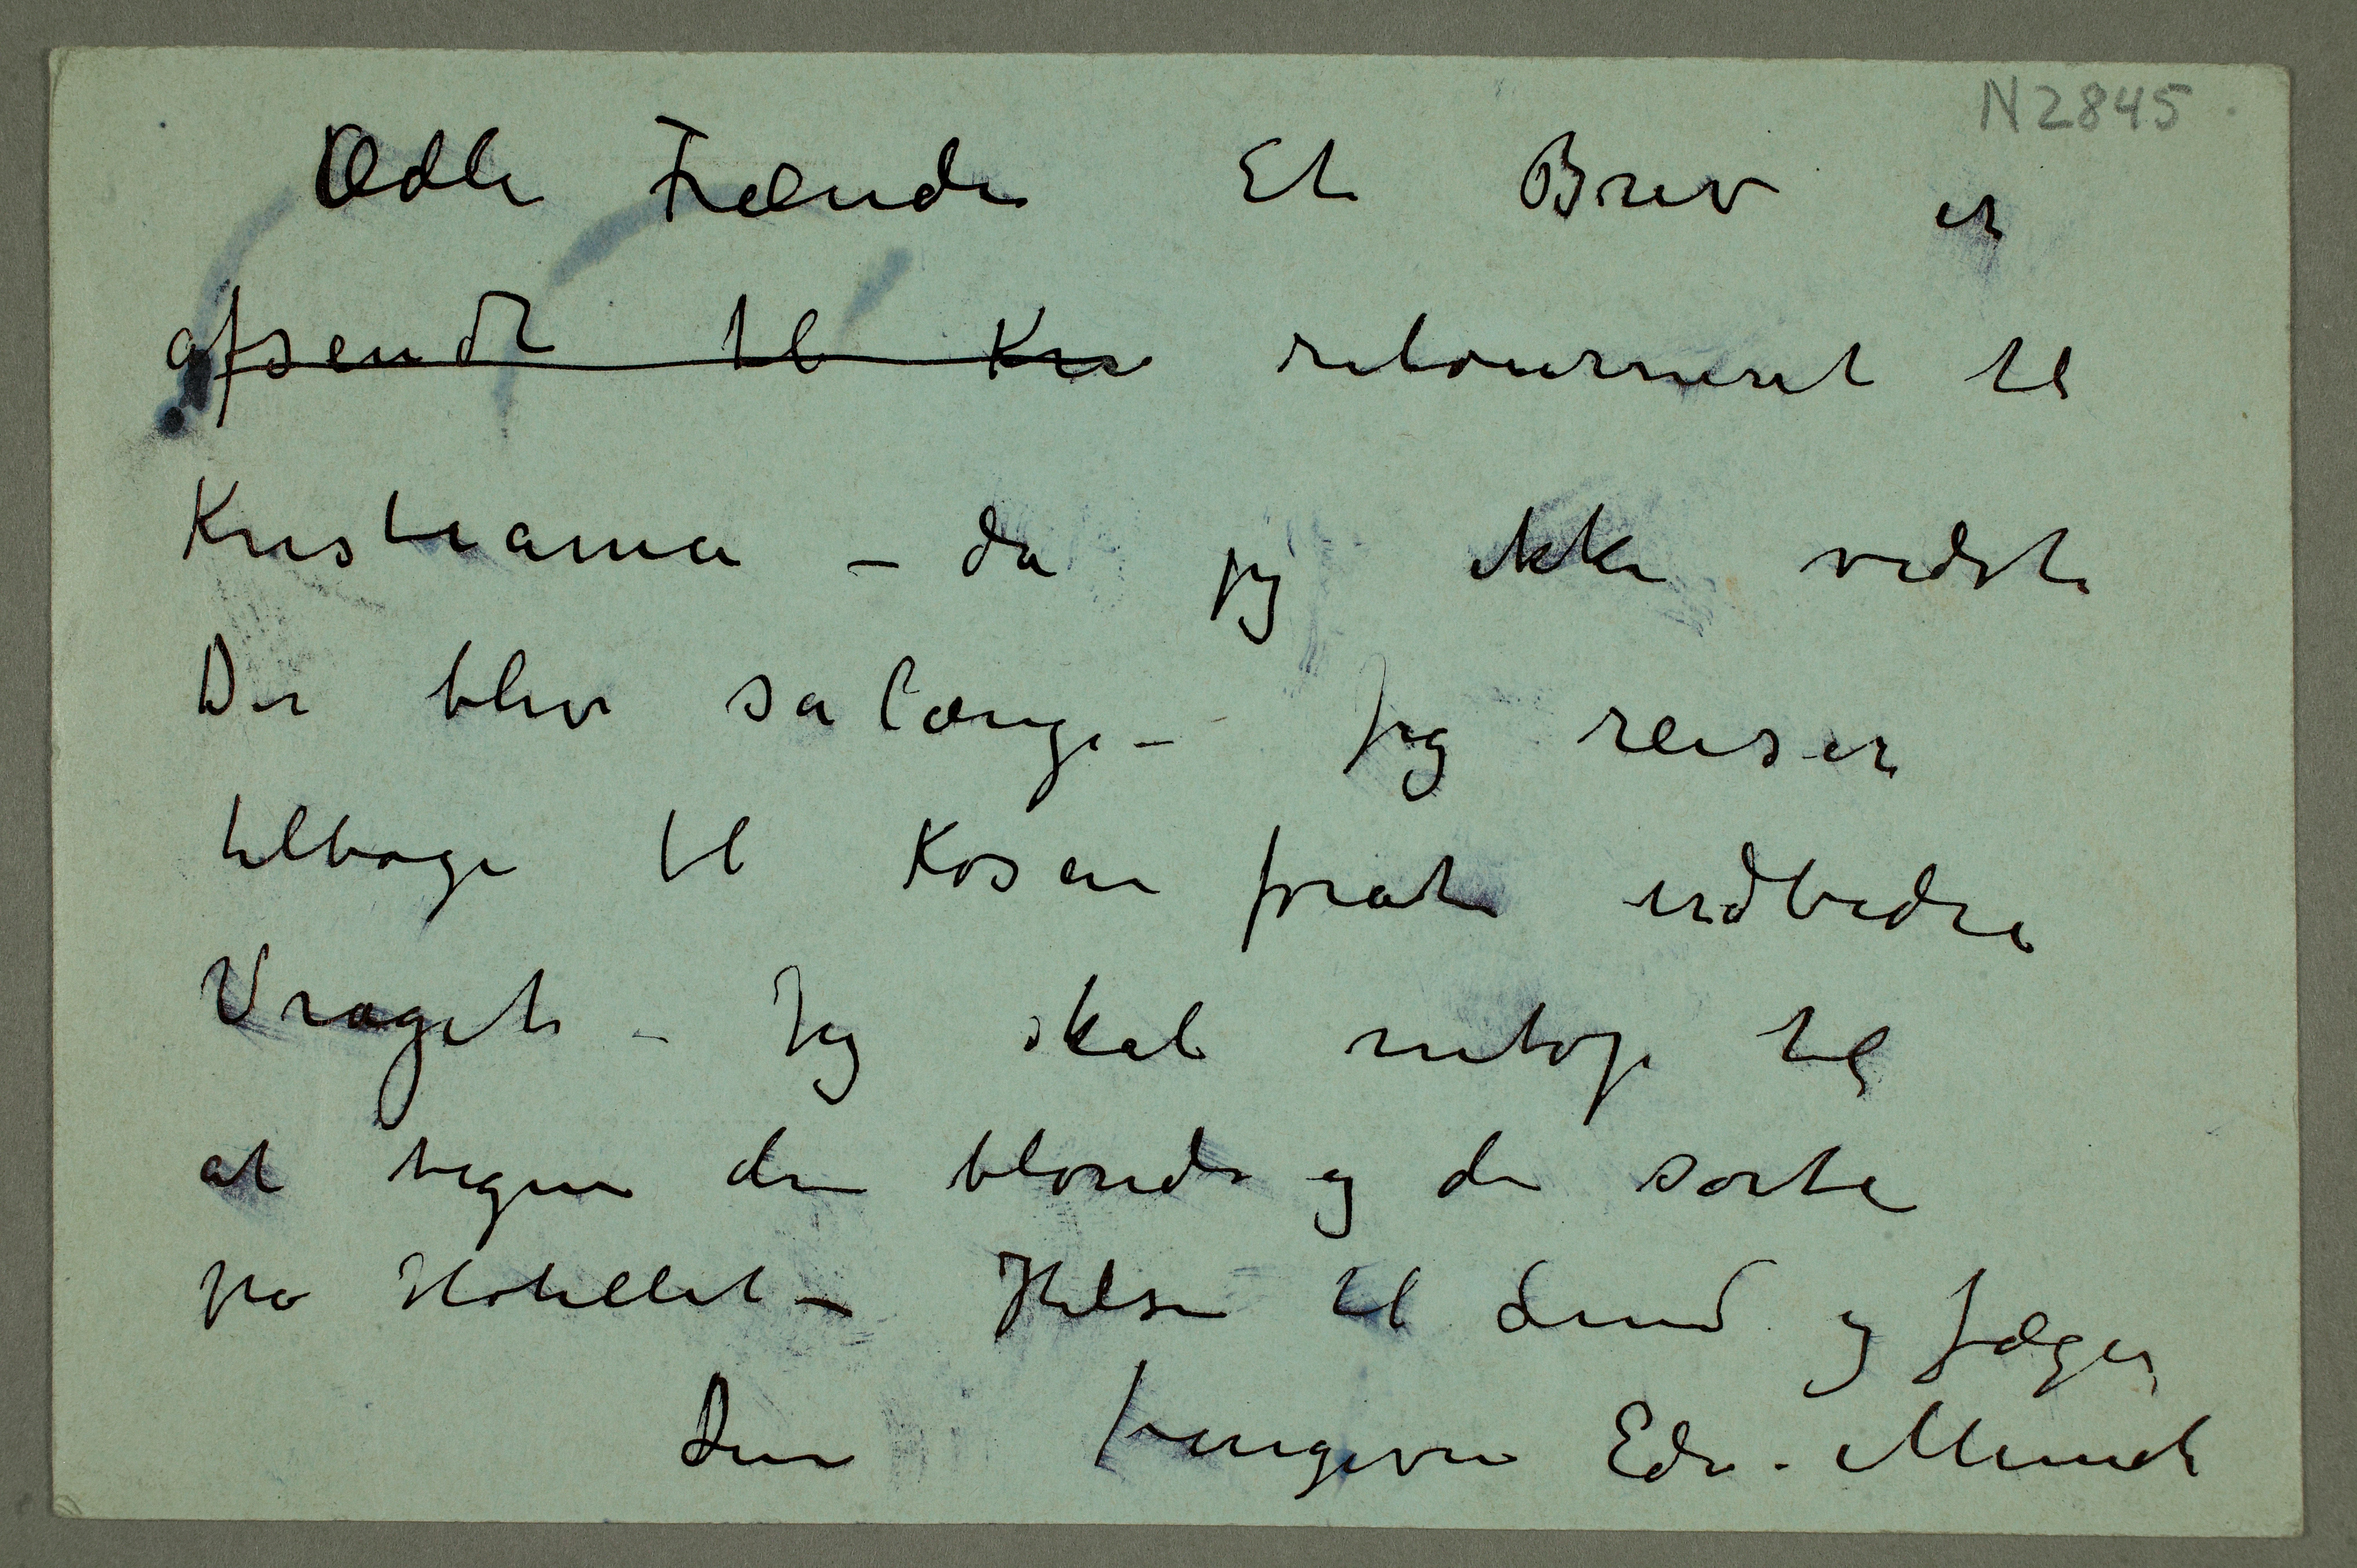 N 2845
Ædle Frænde Et Brev er
afsendt til Kris retourneret til
Kristiania – da jeg ikke vidste
De blev sa længe – Jeg reiser
tilbage til Kösen forat udbedre
Vraget – Jeg skal netop til
at tegne den blonde og de sorte
på Hotellet – Hilsen til Lund og Jæger
Din hengivne Edv. Munch